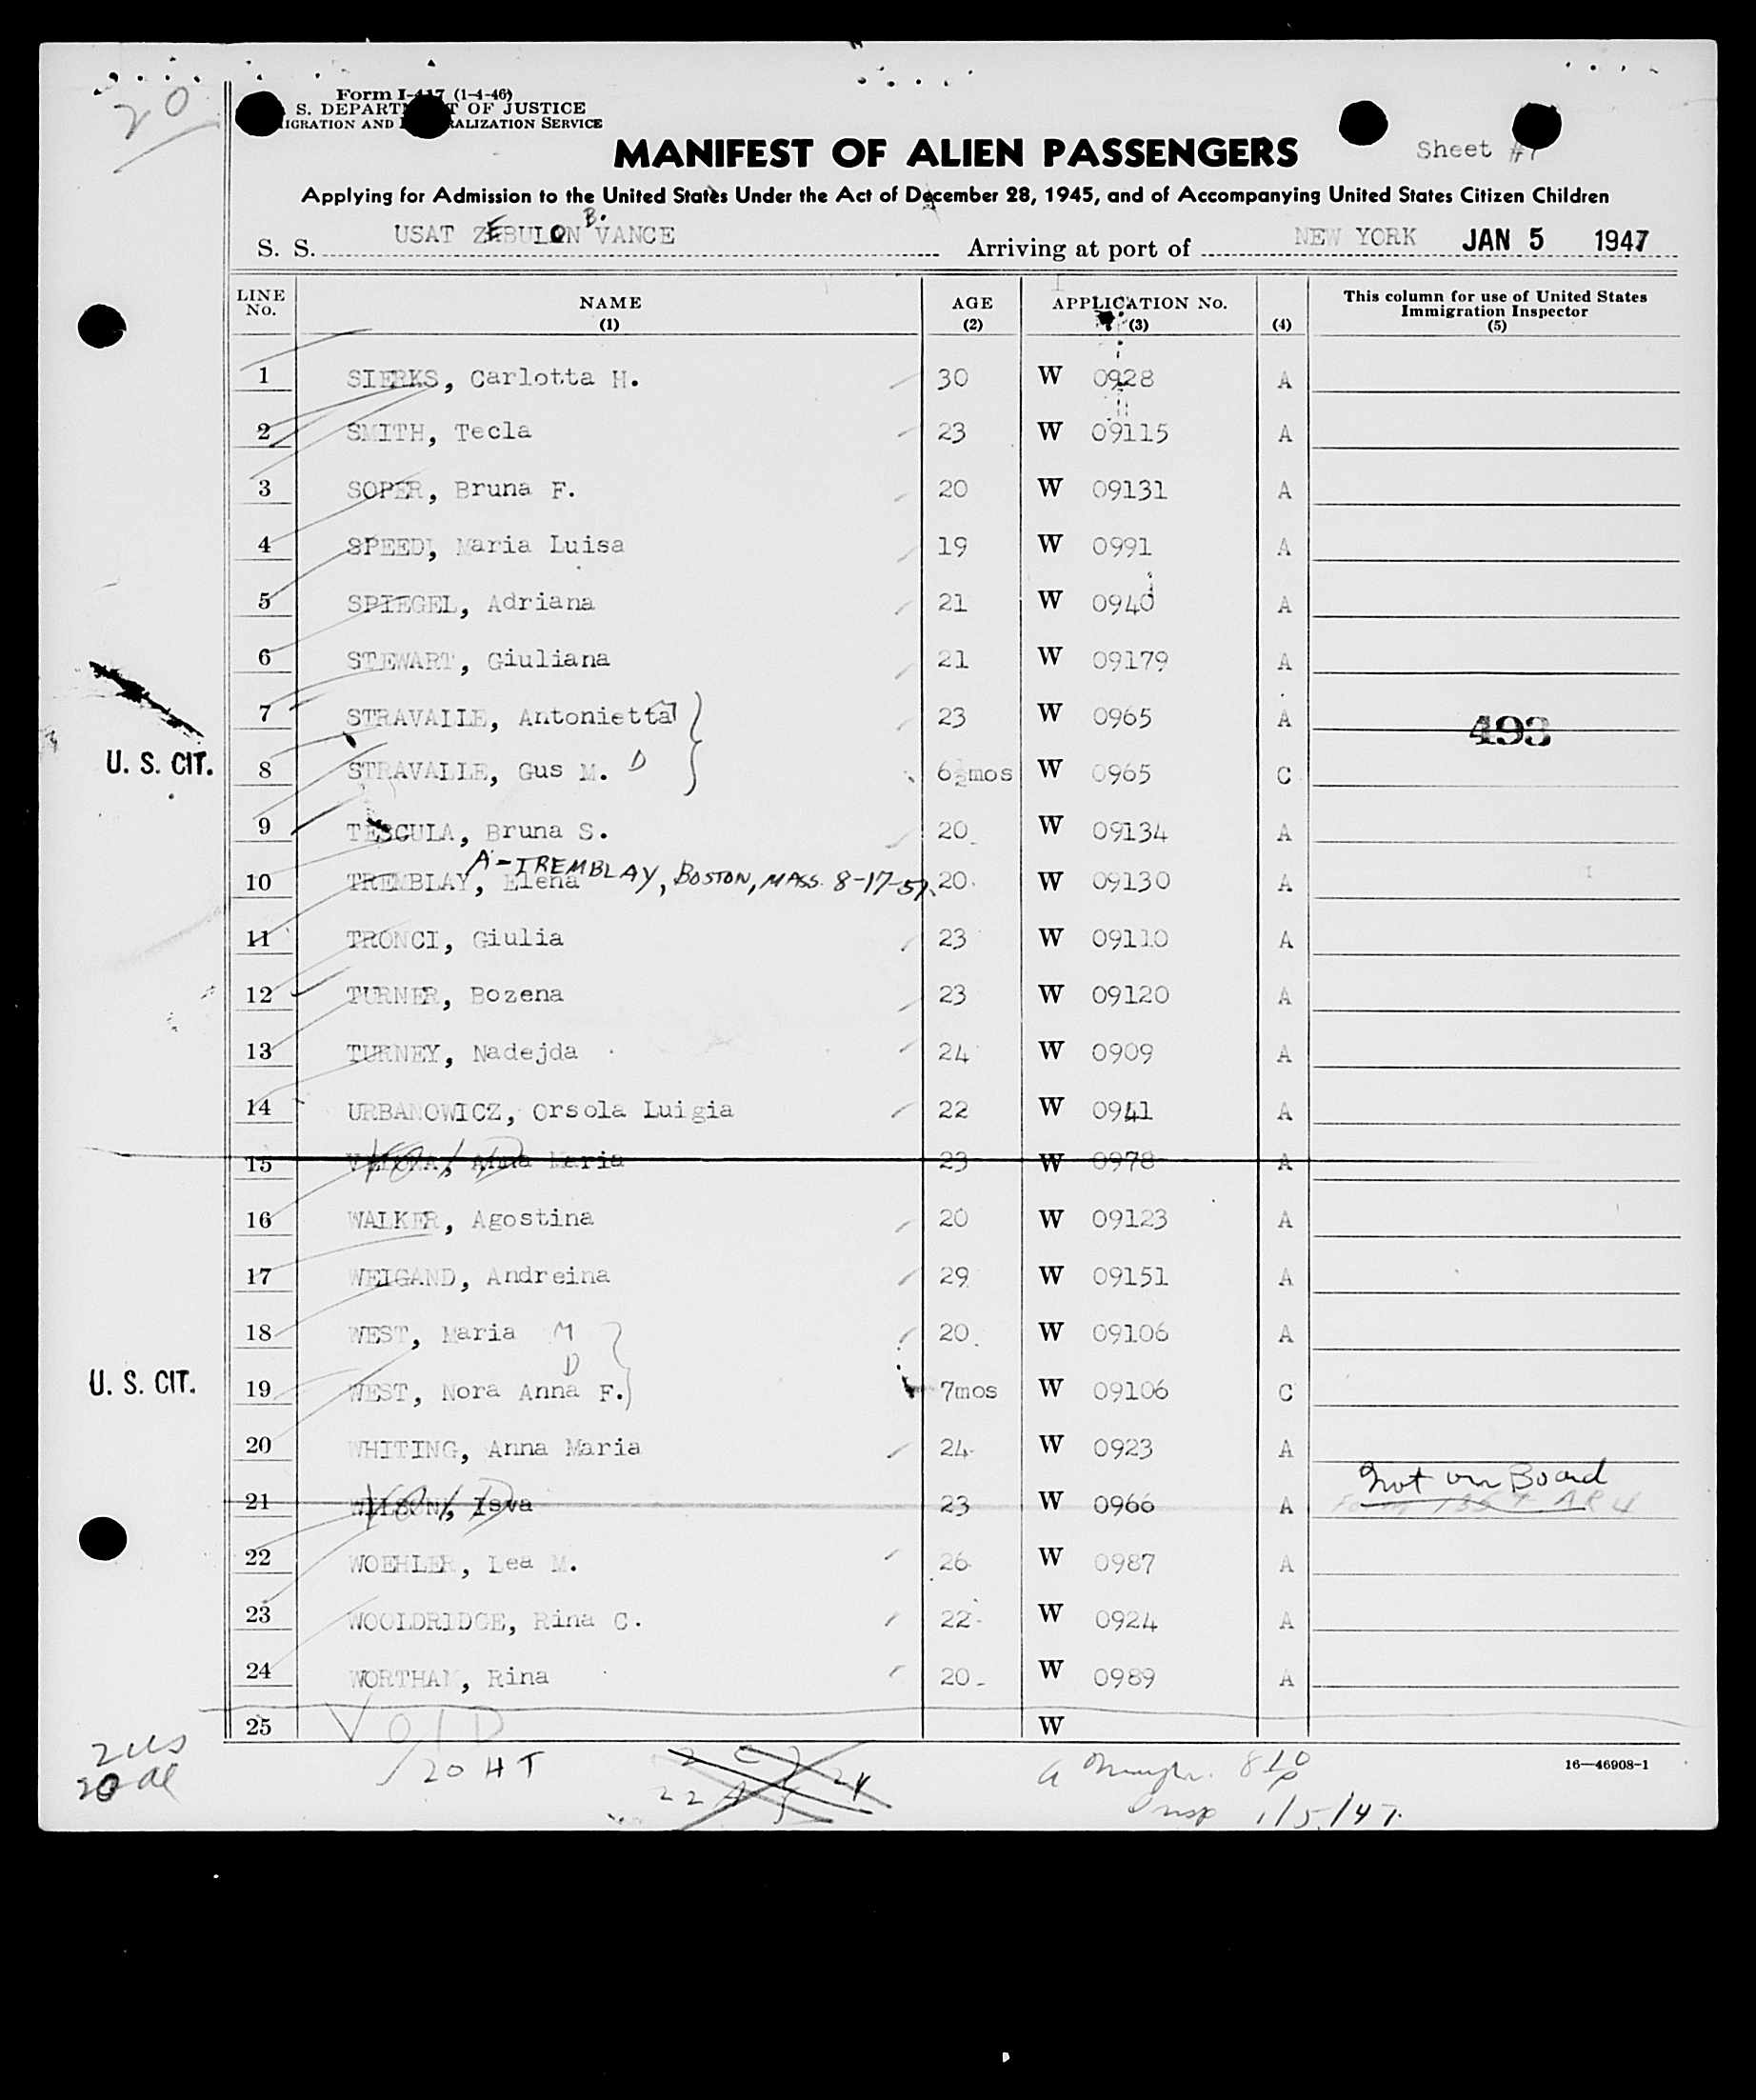 20
Form I-417 (1-4-46)
S. DEPARTMENT OF JUSTICE
IGRATION AND NATURALIZATION SERVICE
MANIFEST OF ALIEN PASSENGERS
Sheet #7
Applying for Admission to the United States Under the Act of December 28, 1945, and of Accompanying United States Citizen Children
S. S. USAT ZEBULON B. VANCE Arriving at port of NEW YORK JAN 5 1947
LINE No. NAME (1) AGE (2) APPLICATION No. (3) (4) This column for use of United States Immigration Inspector (5)
1 SIERKS, Carlotta H. 30 W 0928 A
2 SMITH, Tecla 23 W 09115 A
3 SOPER, Bruna F. 20 W 09131 A
4 SPEED, Maria Luisa 19 W 0991 A
5 SPIEGEL, Adriana 21 W 0940 A
6 STEWART, Giuliana 21 W 09179 A
7 STRAVALLE, Antonietta 23 W 0965 A 493
U. S. CIT. 8 STRAVALLE, Gus M. D 6½mos W 0965 C
9 TESCULA, Bruna S. 20 W 09134 A
A-TREMBLAY, BOSTON, MASS. 8-17-51
10 TREMBLAY, Elena 20 W 09130 A
11 TRONCI, Giulia 23 W 09110 A
12 TURNER, Bozena 23 W 09120 A
13 TURNEY, Nadejda 24 W 0909 A
14 URBANOWICZ, Orsola Luigia 22 W 0941 A
15 VOID Anna Maria 23 W 0978 A
16 WALKER, Agostina 20 W 09123 A
17 WEIGAND, Andreina 29 W 09151 A
18 WEST, Maria M 20 W 09106 A
D
U. S. CIT. 19 WEST, Nora Anna F. 7mos W 09106 C
20 WHITING, Anna Maria 24 W 0923 A
21 WILSON, Isva VOID 23 W 0966 A Not on Board
22 WOEHLER, Lea M. 26 W 0987 A
23 WOOLDRIDGE, Rina C. 22 W 0924 A
24 WORTHAM, Rina 20 W 0989 A
25 VOID W
2 US
20 al
20 HT
2 2
22 24
16—46908-1
Insp 1/5/47